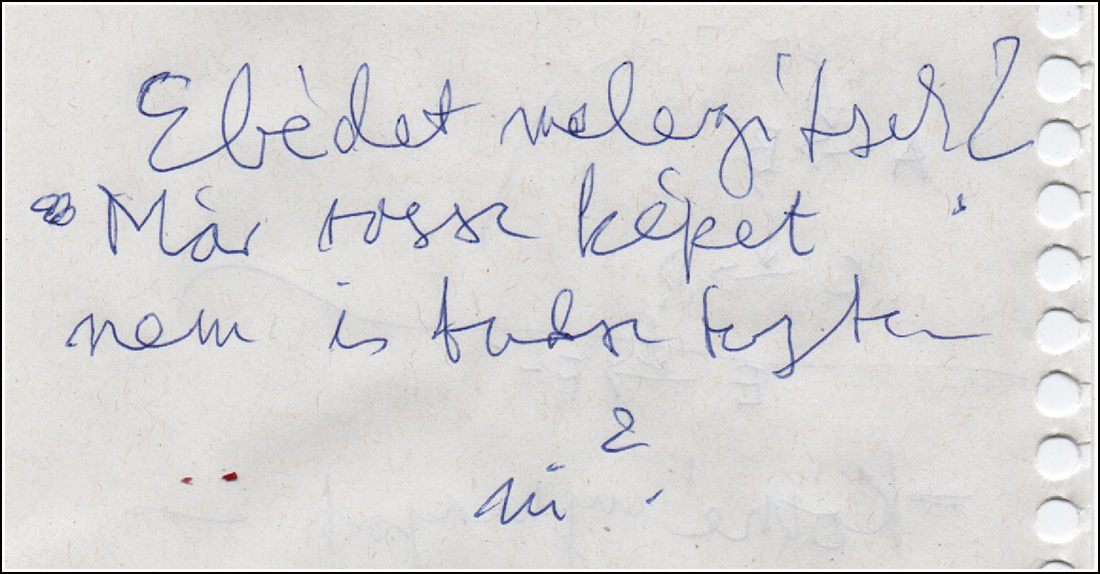 Ebédet melegítsek?
Már rossz képet
nem is tudsz feste
ni?